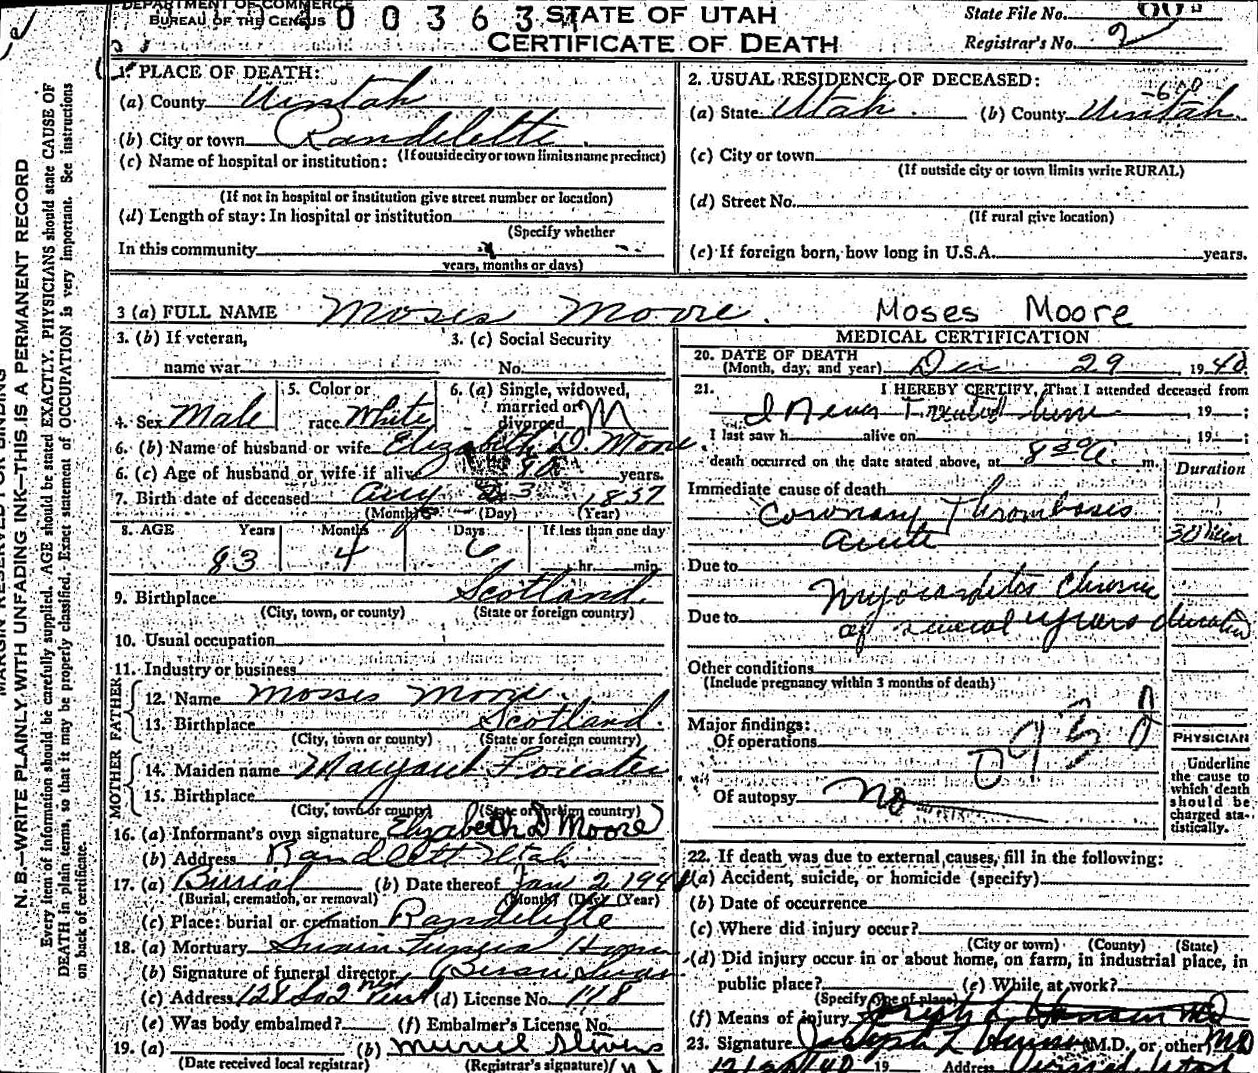 DEPARTMENT OF COMMERCE
BUREAU OF THE CENSUS
STATE OF UTAH
CERTIFICATE OF DEATH
State File No.
Registrar's No. 2
MARGIN RESERVED FOR BINDING
N. B.—WRITE PLAINLY WITH UNFADING INK—THIS IS A PERMANENT RECORD
Every item of information should be carefully supplied. AGE should be stated EXACTLY. PHYSICIANS should state CAUSE OF
DEATH in plain terms, so that it may be properly classified. Exact statement of OCCUPATION is very important. See instructions
on back of certificate.
1. PLACE OF DEATH:
(a) County Uintah
(b) City or town Randelette
(If outside city or town limits name precinct)
(c) Name of hospital or institution:
(If not in hospital or institution give street number or location)
(d) Length of stay: In hospital or institution
(Specify whether
In this community
years, months or days)
2. USUAL RESIDENCE OF DECEASED:
(a) State Utah (b) County Uintah
(c) City or town
(If outside city or town limits write RURAL)
(d) Street No.
(If rural give location)
(e) If foreign born, how long in U.S.A. years.
3 (a) FULL NAME Mosis Moore. Moses Moore
3. (b) If veteran,
name war
3. (c) Social Security
No.
4. Sex Male
5. Color or
race White
6. (a) Single, widowed,
married or
divorced M
6. (b) Name of husband or wife Elizabeth D. Moore
6. (c) Age of husband or wife if alive 80 years.
7. Birth date of deceased Aug 23 1857
(Month) (Day) (Year)
8. AGE Years Months Days If less than one day
83 4 6 hr. min.
9. Birthplace Scotland
(City, town, or county) (State or foreign country)
10. Usual occupation
11. Industry or business
FATHER
12. Name Mosses Moore.
13. Birthplace Scotland.
(City, town or county) (State or foreign country)
MOTHER
14. Maiden name Margaret Forester
15. Birthplace
(City, town or county) (State or foreign country)
16. (a) Informant's own signature Elizabeth D Moore
(b) Address Randlett Utah
17. (a) Burial (b) Date thereof Jan 2 194
(Burial, cremation, or removal) (Month) (Day) (Year)
(c) Place: burial or cremation Randelette
18. (a) Mortuary Swain Funeral Home
(b) Signature of funeral director
(c) Address 128 So 2nd West (d) License No. 118
(e) Was body embalmed? (f) Embalmer's License No.
19. (a) (b) Muriel Stevens
(Date received local registrar) (Registrar's signature)
MEDICAL CERTIFICATION
20. DATE OF DEATH
(Month, day, and year) Dec 29 1940.
21. I HEREBY CERTIFY, That I attended deceased from
I Never Treated him, 19 ;
I last saw h alive on , 19 ;
death occurred on the date stated above, at 8 30 A. m.
Duration
Immediate cause of death
Coronary Thrombosis
Acute 30 Min
Due to
Myocarditis Chronic
Due to of several years duration
Other conditions
(Include pregnancy within 3 months of death)
Major findings:
Of operations
Of autopsy No
PHYSICIAN
Underline
the cause to
which death
should be
charged sta-
tistically.
22. If death was due to external causes, fill in the following:
(a) Accident, suicide, or homicide (specify)
(b) Date of occurrence
(c) Where did injury occur?
(City or town) (County) (State)
(d) Did injury occur in or about home, on farm, in industrial place, in
public place? (e) While at work?
(Specify type of place)
(f) Means of injury
23. Signature Joseph L Hansen (M.D. or other) MD
19 Address